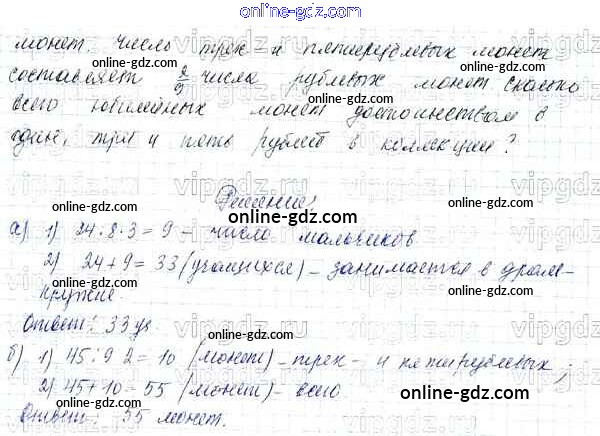 online-gdz.com
монет. Число трех и пятирублевых монет
составляет 2/9 числа рублевых монет. Сколько
всего юбилейных монет достоинством в
один, три и пять рублей в коллекции?
Решение:
online-gdz.com
а) 1) 24:8·3=9 – число мальчиков
2) 24+9=33 (учащихся) – занимается в драм-
кружке.
Ответ: 33 уч.
б) 1) 45:9·2=10 (монет) – трех- и пятирублевых;
2) 45+10=55 (монет) – всего
Ответ: 55 монет.